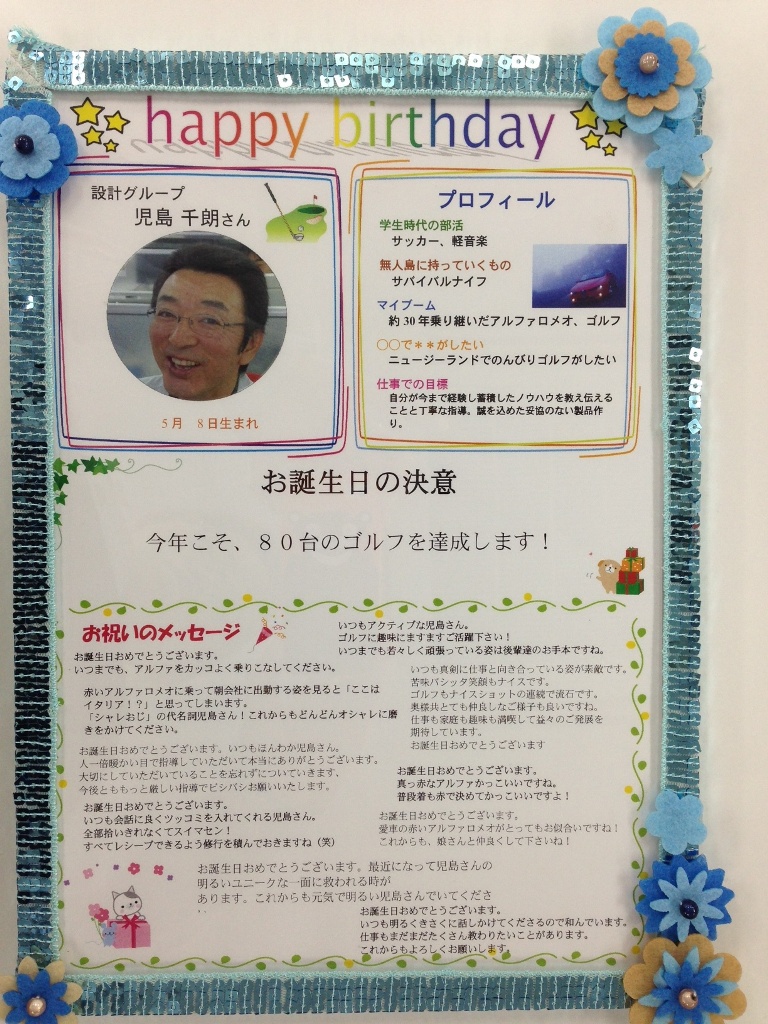 happy birthday
設計グループ
児島 千朗さん
5月 8日生まれ
プロフィール
学生時代の部活
サッカー、軽音楽
無人島に持っていくもの
サバイバルナイフ
マイブーム
約30年乗り継いだアルファロメオ、ゴルフ
〇〇で＊＊がしたい
ニュージーランドでのんびりゴルフがしたい
仕事での目標
自分が今まで経験し蓄積したノウハウを教え伝える
ことと丁寧な指導。誠を込めた妥協のない製品作
り。
お誕生日の決意
今年こそ、８０台のゴルフを達成します！
お祝いのメッセージ
お誕生日おめでとうございます。
いつまでも、アルファをカッコよく乗りこなしてください。
赤いアルファロメオに乗って朝会社に出勤する姿を見ると「ここは
イタリア！？」と思ってしまいます。
「シャレおじ」の代名詞児島さん！これからもどんどんオシャレに磨
きをかけてください。
お誕生日おめでとうございます。いつもほんわか児島さん。
人一倍暖かい目で指導していただいて本当にありがとうございます。
大切にしていただいていることを忘れずについていきます、
今後とももっと厳しい指導でビシバシお願いいたします。
お誕生日おめでとうございます。
いつも会話に良くツッコミを入れてくれる児島さん。
全部拾いきれなくてスイマセン！
すべてレシーブできるよう修行を積んでおきますね（笑）
いつもアクティブな児島さん。
ゴルフに趣味にますますご活躍下さい！
いつまでも若々しく頑張っている姿は後輩達のお手本ですね。
いつも真剣に仕事と向き合っている姿が素敵です。
苦味バシッタ笑顔もナイスです。
ゴルフもナイスショットの連続で流石です。
奥様共とても仲良しなご様子も良いですね。
仕事も家庭も趣味も満喫して益々のご発展を
期待しています。
お誕生日おめでとうございます
お誕生日おめでとうございます。
真っ赤なアルファかっこいいですね。
普段着も赤で決めてかっこいいですよ！
お誕生日おめでとうございます。
愛車の赤いアルファロメオがとってもお似合いですね！
これからも、娘さんと仲良くして下さいね！
お誕生日おめでとうございます。最近になって児島さんの
明るいユニークな一面に救われる時が
あります。これからも元気で明るい児島さんでいてくださ
お誕生日おめでとうございます。
いつも明るくきさくに話しかけてくださるので和んでいます。
仕事もまだまだたくさん教わりたいことがあります。
これからもよろしくお願いします。